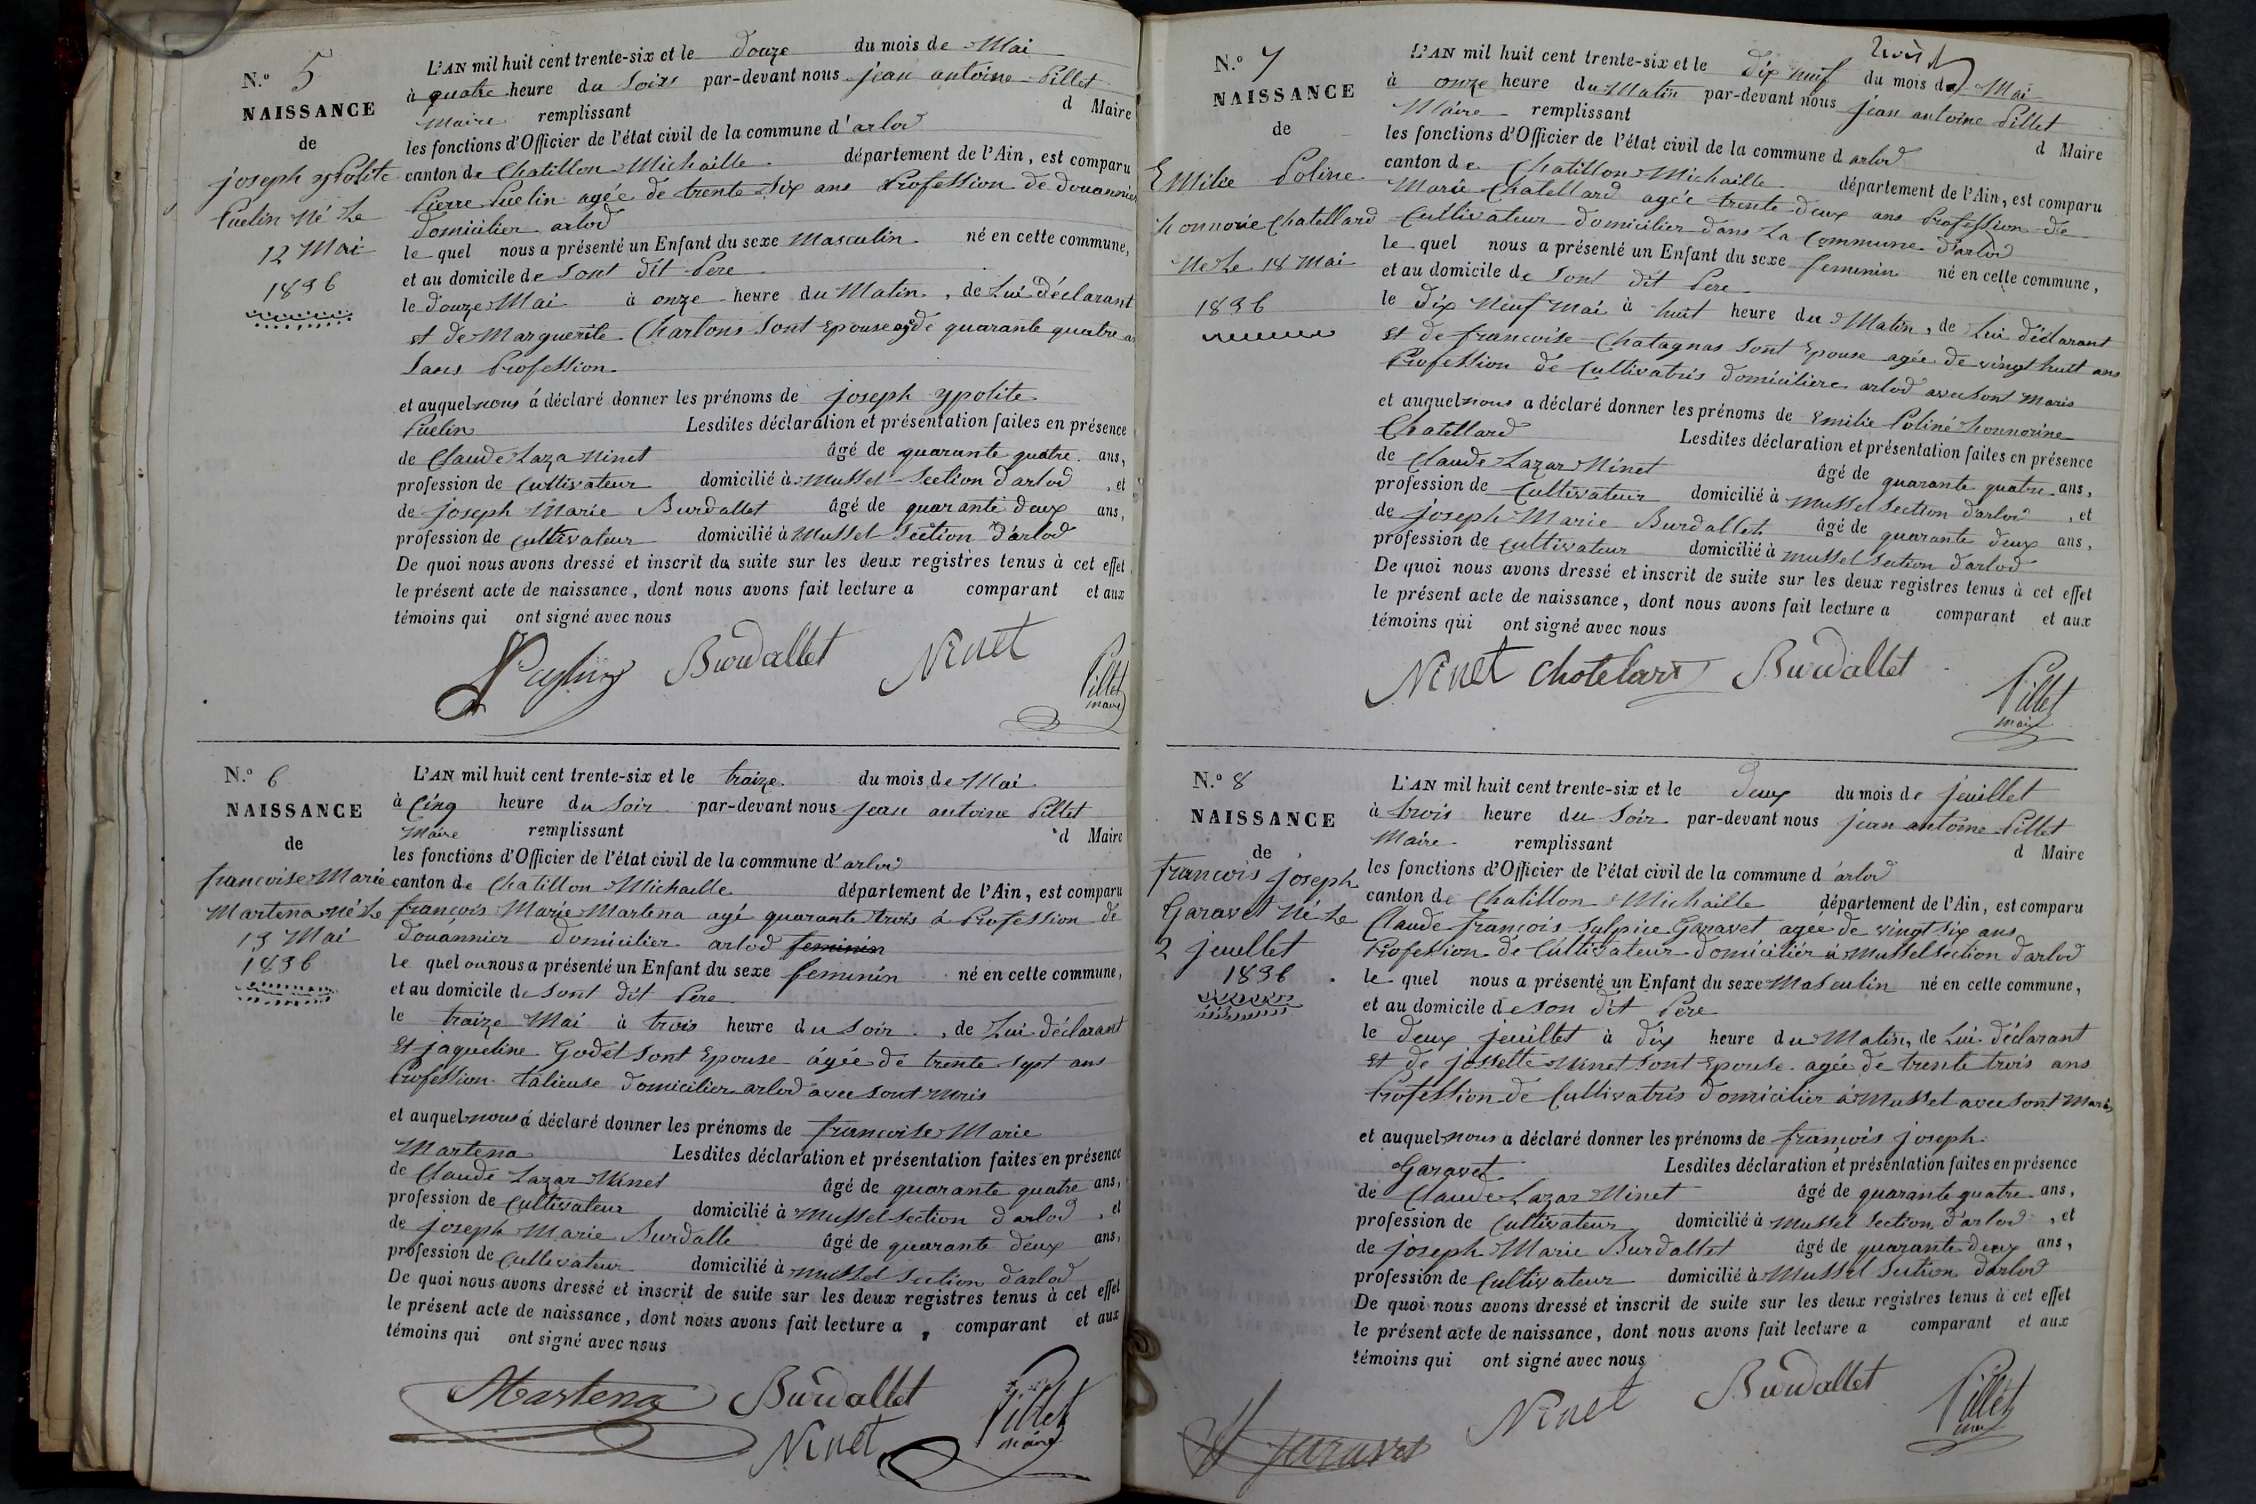 N.º 5
NAISSANCE
de
joseph ypolite
Puelin né Le
12 Mai
1836
L'AN mil huit cent trente-six et le douze du mois de Mai
à quatre heure du Soirs par-devant nous jean antoine Pillet
Maire remplissant d Maire
les fonctions d'Officier de l'état civil de la commune d'arlod
canton de Chatillon Michaille département de l'Ain, est comparu
Pierre Puelin agée de trente Six ans Profession de douannier
domicilier arlod
le quel nous a présenté un Enfant du sexe Masculin né en cette commune,
et au domicile de Sont dit Pere
le douze Mai à onze heure du Matin, de Lui déclarant
et de Marguerite Chartons Sont Epouse agé de quarante quatre
Sans Profession
et auquel nous à déclaré donner les prénoms de joseph ypolite
Puelin Lesdites déclaration et présentation faites en présence
de Claude Laza Ninet âgé de quarante quatre ans,
profession de Cultivateur domicilié à Mussel Section d'arlod, et
de joseph Marie Burdallet âgé de quarante deux ans,
profession de Cultivateur domicilié à Mussel Section d'arlod
De quoi nous avons dressé et inscrit de suite sur les deux registres tenus à cet effet
le présent acte de naissance, dont nous avons fait lecture a comparant et aux
témoins qui ont signé avec nous
Burdallet Ninet Pillet
maire
N.º 6
NAISSANCE
de
francoise Marie
Martena né Le
13 Mai
1836
L'AN mil huit cent trente-six et le traize du mois de Mai
à Cinq heure du Soir par-devant nous jean antoine Pillet
Maire remplissant d Maire
les fonctions d'Officier de l'état civil de la commune d'arlod
canton de Chatillon Michaille département de l'Ain, est comparu
françois Marie Martena agé quarante trois á Profession de
douannier domicilier arlod feminin
le quel nous a présenté un Enfant du sexe feminin né en cette commune,
et au domicile de Sont dit Pere
le traize Mai à trois heure du Soir, de Lui déclarant
Et jaqueline Godet Sont Epouse ágée de trente Sept ans
Profession talieuse domicilier arlod avec Sont Maris
et auquel nous á déclaré donner les prénoms de francoise Marie
Martena Lesdites déclaration et présentation faites en présence
de Claude Lazar Ninet âgé de quarante quatre ans,
profession de Cultivateur domicilié à Mussel Section d'arlod, et
de joseph Marie Burdalle âgé de quarante deux ans,
profession de Cultivateur domicilié à Mussel Section d'arlod
De quoi nous avons dressé et inscrit de suite sur les deux registres tenus à cet effet
le présent acte de naissance, dont nous avons fait lecture a comparant et aux
témoins qui ont signé avec nous
Martena Burdallet Pillet
Ninet maire
N.º 7
NAISSANCE
de
Emilie Poline
honnorie Chatellard
Né Le 18 Mai
1836
L'AN mil huit cent trente-six et le dix neuf du mois de Mai
à onze heure du Matin par-devant nous jean antoine Pillet
Maire remplissant d Maire
les fonctions d'Officier de l'état civil de la commune d arlod
canton de Chatillon Michaille département de l'Ain, est comparu
Marie Chatellard agée trente deux ans Profession de
Cultivateur domicilier dans La Commune d'arlod
le quel nous a présenté un Enfant du sexe feminin né en cette commune,
et au domicile de Sont dit Pere
le dix Neuf Mai à huit heure du Matin, de Lui déclarant
Et de francoise Chatagnas Sont Epouse agée de vingt huit ans
Profession de Cultivatris domiciliere arlod avec Sont Maris
et auquel nous a déclaré donner les prénoms de Emilie Poliné honnorine
Chatellard Lesdites déclaration et présentation faites en présence
de Claude Lazar Ninet âgé de quarante quatre ans,
profession de Cultivateur domicilié à Mussel Section d'arlod, et
de joseph Marie Burdallet âgé de quarante deux ans,
profession de Cultivateur domicilié à Mussel Section d'arlod
De quoi nous avons dressé et inscrit de suite sur les deux registres tenus à cet effet
le présent acte de naissance, dont nous avons fait lecture a comparant et aux
témoins qui ont signé avec nous
Ninet Chotelart Burdallet Pillet
maire
N.º 8
NAISSANCE
de
francois joseph
Garavet Né Le
2 juillet
1836
L'AN mil huit cent trente-six et le deux du mois de juillet
à trois heure du Soir par-devant nous jean antoine Pillet
Maire remplissant d Maire
les fonctions d'Officier de l'état civil de la commune d'arlod
canton de Chatillon Michaille département de l'Ain, est comparu
Claude françois Sulpice Garavet agee de vingt six ans
Profession de Cultivateur domicilier à Mussel section d'arlod
le quel nous a présenté un Enfant du sexe Masculin né en cette commune,
et au domicile de Son dit Pere
le deux jeuillet à dix heure du Matin, de Lui déclarant
Et de jossette Ninet Sont Epouse agée de trente trois ans
Profession de Cultivatris domicilier à Mussel avec Sont Maris
et auquel nous a déclaré donner les prénoms de francois joseph
Garavet Lesdites déclaration et présentation faites en présence
de Claude Lazar Ninet âgé de quarante quatre ans,
profession de Cultivateur domicilié à Mussel Section d'arlod, et
de joseph Marie Burdallet âgé de quarante deux ans,
profession de Cultivateur domicilié à Mussel Section d'arlod
De quoi nous avons dressé et inscrit de suite sur les deux registres tenus à cet effet
le présent acte de naissance, dont nous avons fait lecture a comparant et aux
témoins qui ont signé avec nous
Garavet Ninet Burdallet Pillet
maire